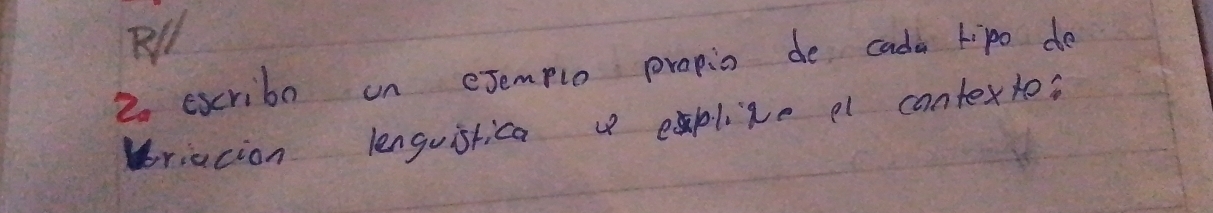 R//
2. escribo un ejemplo propio de cada tipo de
Variacion lenguistica y explico el contexto: